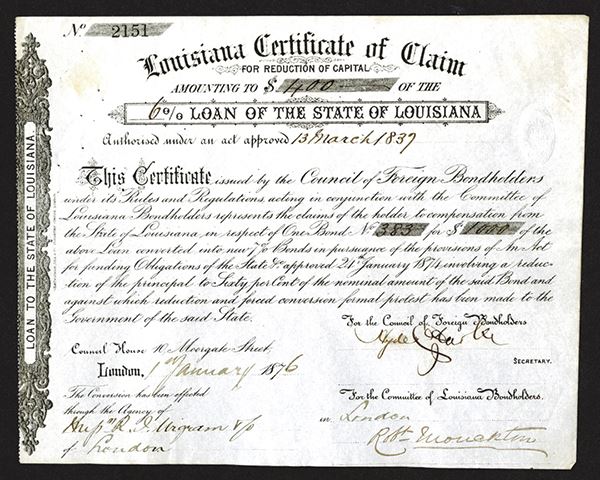 No 2151
Louisiana Certificate of Claim
FOR REDUCTION OF CAPITAL
AMOUNTING TO $ 400 OF THE
6% LOAN OF THE STATE OF LOUISIANA
Authorised under an act approved 13 March 1837
This Certificate issued by the Council of Foreign Bondholders
under its Rules and Regulations, acting in conjunction with the Committee of
Louisiana Bondholders represents the claims of the holder to compensation from
the State of Louisiana, in respect of One Bond No 383 for $ 1000 of the
above Loan converted into new 7% Bonds in pursuance of the provisions of An Act
for funding Obligations of the State &c. approved 24th January 1874, involving a reduc-
tion of the principal to Sixty per Cent of the nominal amount of the said Bond and
against which reduction and forced conversion formal protest has been made to the
Government of the said State.
For the Council of Foreign Bondholders
Hyde Clarke
SECRETARY.
Council House 10, Moorgate Street,
London, 1st January 1876
The Conversion has been effected
through the Agency of
of London
For the Committee of Louisiana Bondholders,
in London
Robt Monckton
LOAN TO THE STATE OF LOUISIANA